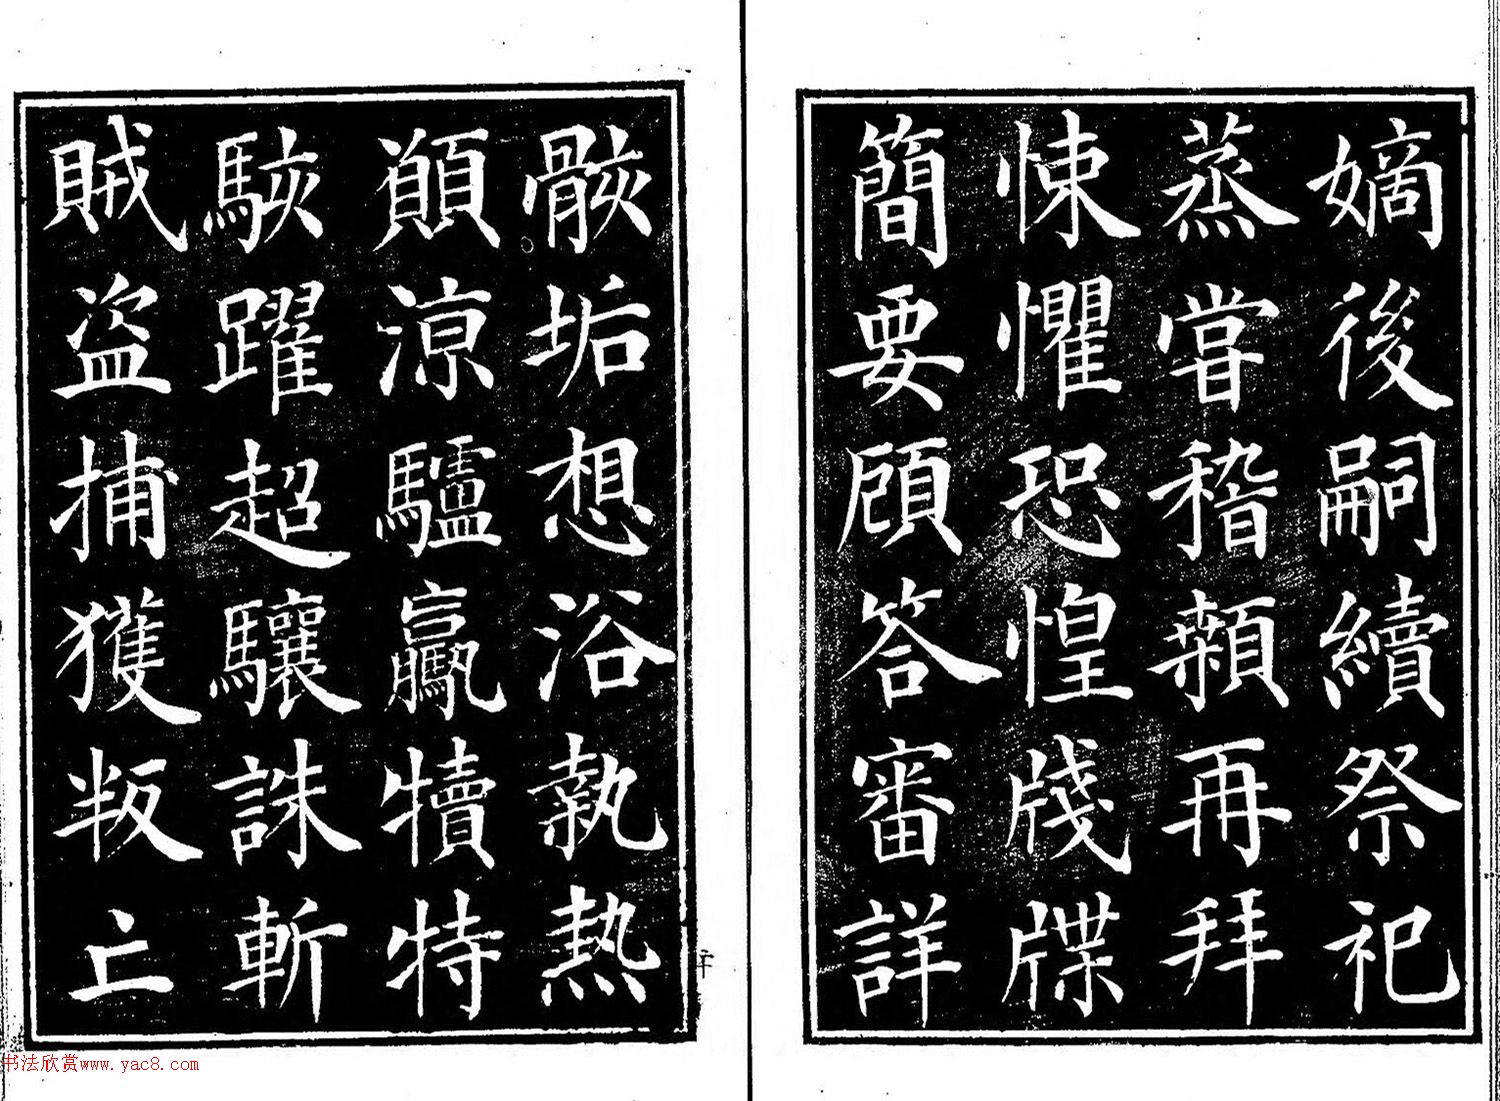 嫡後嗣續祭祀
蒸甞稽顙再拜
悚懼恐惶牋牒
簡要顧答審詳
骸垢想浴執熱
願涼驢騾犢特
駭躍超驤誅斬
賊盜捕獲叛亡
书法欣赏www.yac8.com